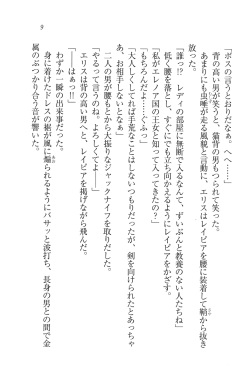 9
「ボスの言うとおりだなぁ。へへ……」
背の高い男が笑うと、猫背の男もつられて笑った。
あまりにも虫唾が走る風貌と言動に、エリスはレイピアを腰に装着して鞘から抜き
放った。
「誰っ!? レディの部屋に無断で入るなんて、ずいぶんと教養のない人たちね」
低く腰を落とし、敵が何人でも立ち向かえるようにレイピアをかざす。
「私がエレノア国の王女と知って入ってきたの?」
「もちろんだよ……ぐふっ」
「大人しくしてれば手荒なことはしないつもりだったが、剣を向けられたとあっちゃ
あ、お相手しないとなぁ」
二人の男が腰もとから大振りなジャックナイフを取りだした。
「やるって言うのね。よろしくてよ――」
エリスは背の高い男へと、レイピアを掲げながら飛んだ。
「はぁっ!!」
わずか一瞬の出来事だった。
身に着けたドレスの裾が風に煽られるようにバサッと波打ち、長身の男との間で金
属のぶつかり合う音が響いた。